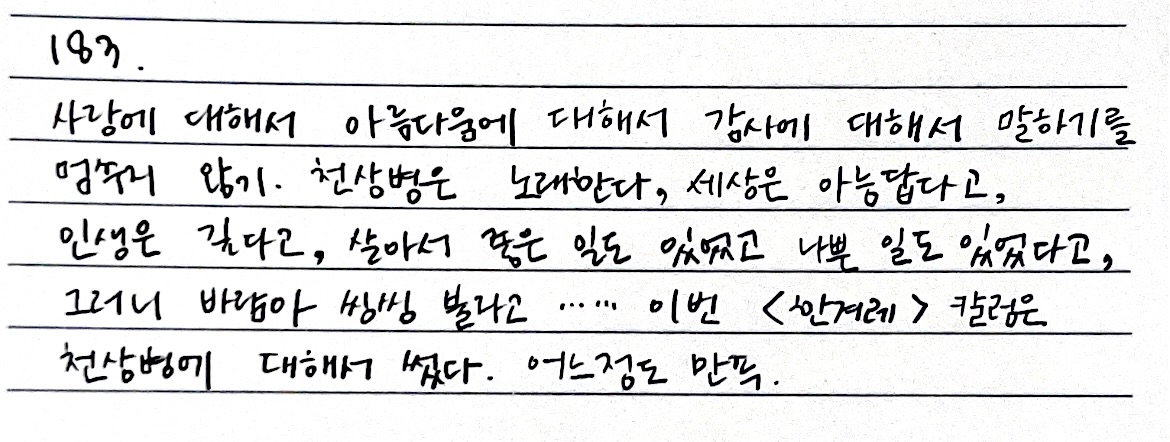 183.
사랑에 대해서 아름다움에 대해서 감사에 대해서 말하기를
멈추지 않기. 천상병은 노래한다, 세상은 아름답다고,
인생은 깊다고, 살아서 좋은 일도 있었고 나쁜 일도 있었다고,
그러니 바람아 씽씽 불라고 …… 이번 <한겨레> 칼럼은
천상병에 대해서 썼다. 어느정도 만족.